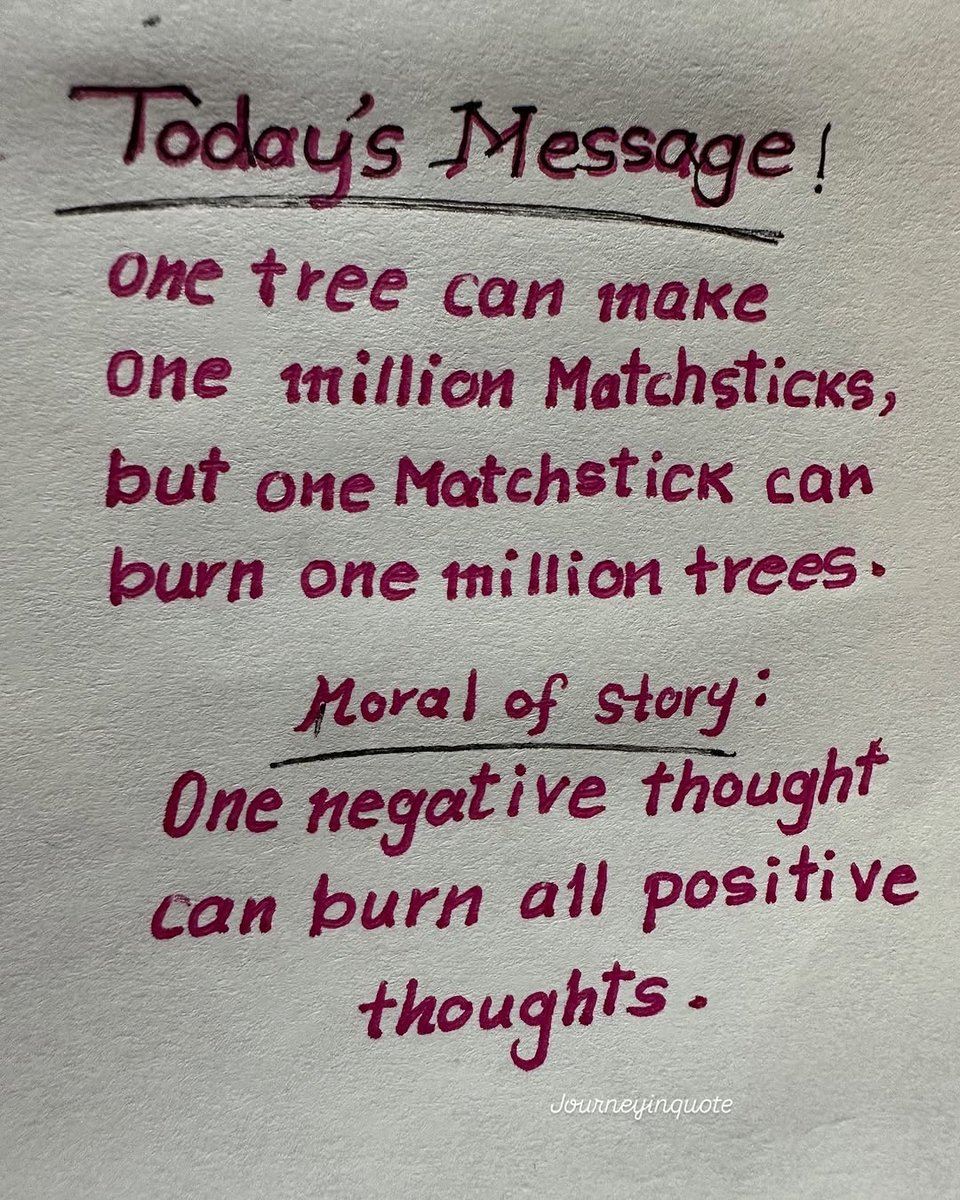 Today's Message!
one tree can make
one million Matchsticks,
but one Matchstick can
burn one million trees.
Moral of story:
One negative thought
can burn all positive
thoughts.
Journeyinquote